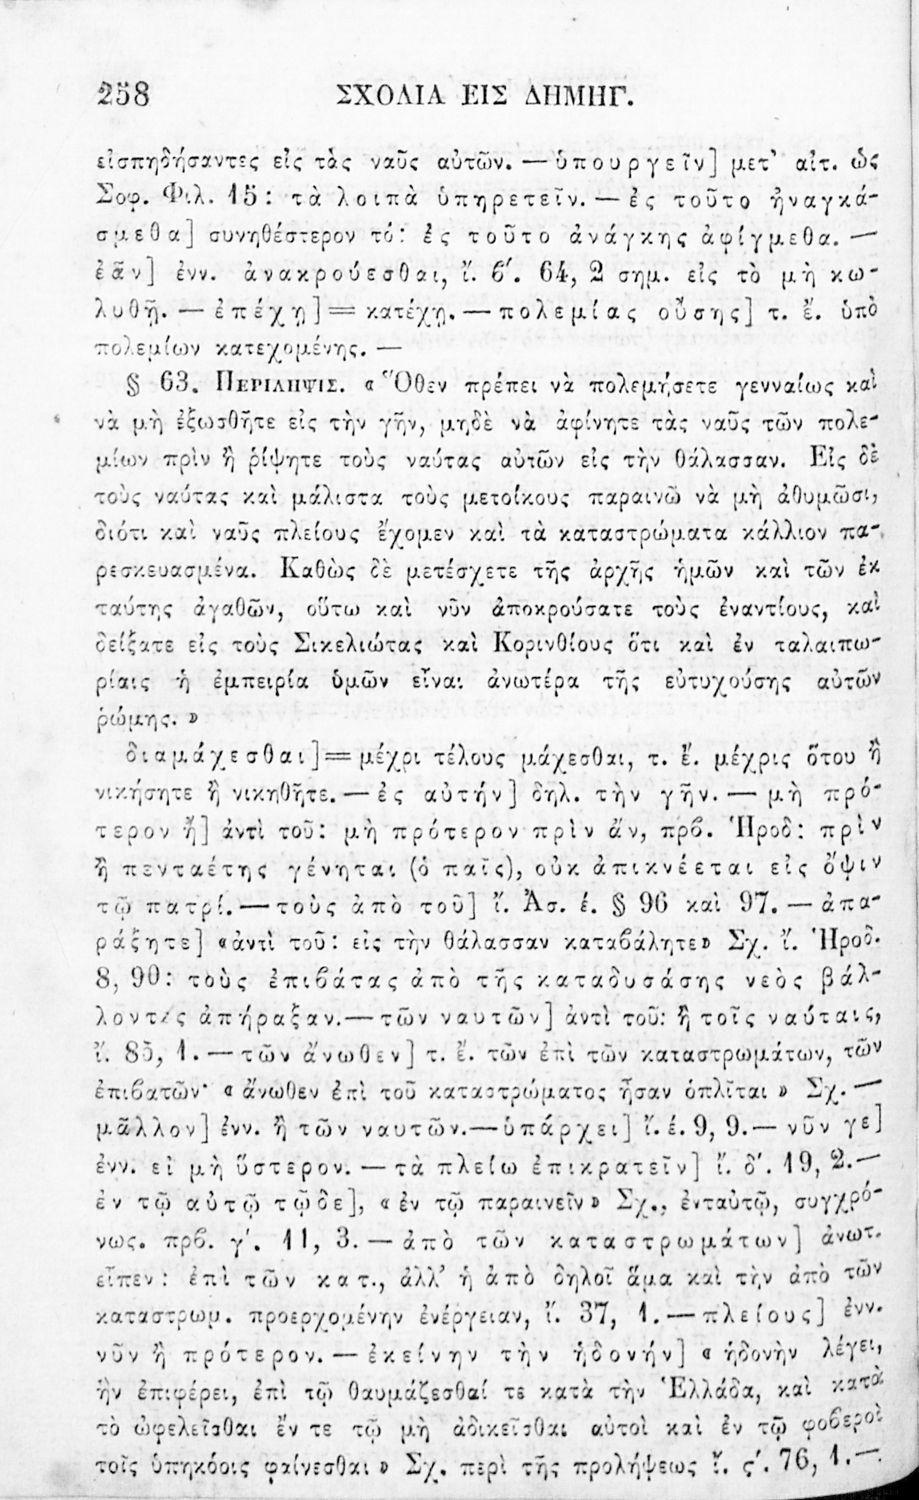 258 ΣΧΟΛΙΑ ΕΙΣ ΔΗΜΗΓ.
εἰσπηδήσαντες εἰς τὰς ναῦς αὐτῶν. — ὑπουργεῖν] μετ᾽ αἰτ. ὡς
Σοφ. Φιλ. 15: τὰ λοιπὰ ὑπηρετεῖν. — ἐς τοῦτο ἠναγκά-
σμεθα] συνηθέστερον τό: ἐς τοῦτο ἀνάγκης ἀφίγμεθα. —
ἐᾶν] ἐνν. ἀνακρούεσθαι, ἴ. ϐ΄. 64, 2 σημ. εἰς τὸ μὴ κω-
λυθῇ. — ἐπέχῃ] = κατέχῃ. — πολεμίας οὔσης] τ. ἔ. ὑπὸ
πολεμίων κατεχομένης. —
§ 63. ΠΕΡΙΛΗΨΙΣ. « Ὅθεν πρέπει νὰ πολεμήσετε γενναίως καὶ
νὰ μὴ ἐξωσθῆτε εἰς τὴν γῆν, μηδὲ νὰ ἀφίνητε τὰς ναῦς τῶν πολε-
μίων πρὶν ἢ ῥίψητε τοὺς ναύτας αὐτῶν εἰς τὴν θάλασσαν. Εἰς δὲ
τοὺς ναύτας καὶ μάλιστα τοὺς μετοίκους παραινῶ νὰ μὴ ἀθυμῶσι,
διότι καὶ ναῦς πλείους ἔχομεν καὶ τὰ καταστρώματα κάλλιον πα-
ρεσκευασμένα. Καθὼς δὲ μετέσχετε τῆς ἀρχῆς ἡμῶν καὶ τῶν ἐκ
ταύτης ἀγαθῶν, οὕτω καὶ νῦν ἀποκρούσατε τοὺς ἐναντίους, καὶ
δείξατε εἰς τοὺς Σικελιώτας καὶ Κορινθίους ὅτι καὶ ἐν ταλαιπω-
ρίαις ἡ ἐμπειρία ὑμῶν εἶναι ἀνωτέρα τῆς εὐτυχούσης αὐτῶν
ῥώμης. »
διαμάχεσθαι] = μέχρι τέλους μάχεσθαι, τ. ἔ. μέχρις ὅτου ἢ
νικήσητε ἢ νικηθῆτε. — ἐς αὐτήν] δηλ. τὴν γῆν. — μὴ πρό-
τερον ἤ] ἀντὶ τοῦ: μὴ πρότερον πρὶν ἄν, πρϐ. Ἡροδ: πρὶν
ἢ πενταέτης γένηται (ὁ παῖς), οὐκ ἀπικνέεται εἰς ὄψιν
τῷ πατρί. — τοὺς ἀπὸ τοῦ] ἴ. Ἀσ. έ. § 96 καὶ 97. — ἀπα-
ράξητε] «ἀντὶ τοῦ: εἰς τὴν θάλασσαν καταϐάλητε» Σχ. ἴ. Ἡροδ.
8, 90: τοὺς ἐπιϐάτας ἀπὸ τῆς καταδυσάσης νεὸς βάλ-
λοντες ἀπήραξαν. — τῶν ναυτῶν] ἀντὶ τοῦ: ἢ τοῖς ναύταις,
ἴ. 85, 1. — τῶν ἄνωθεν] τ. ἔ. τῶν ἐπὶ τῶν καταστρωμάτων, τῶν
ἐπιϐατῶν· « ἄνωθεν ἐπὶ τοῦ καταστρώματος ἦσαν ὁπλῖται » Σχ. —
μᾶλλον] ἐνν. ἢ τῶν ναυτῶν. — ὑπάρχει] ἴ. έ. 9, 9. — νῦν γε]
ἐνν. εἰ μὴ ὕστερον. — τὰ πλείω ἐπικρατεῖν] ἴ. δ΄. 19, 2. —
ἐν τῷ αὐτῷ τῷδε], « ἐν τῷ παραινεῖν » Σχ., ἐνταὐτῷ, συγχρό-
νως. πρϐ. γ΄. 11, 3. — ἀπὸ τῶν καταστρωμάτων] ἀνωτ.
εἶπεν: ἐπὶ τῶν κατ., ἀλλ᾽ ἡ ἀπὸ δηλοῖ ἅμα καὶ τὴν ἀπὸ τῶν
καταστρωμ. προερχομένην ἐνέργειαν, ἴ. 37, 1. — πλείους] ἐνν.
νῦν ἢ πρότερον. — ἐκείνην τὴν ἡδονήν] « ἡδονὴν λέγει,
ἣν ἐπιφέρει, ἐπὶ τῷ θαυμάζεσθαί τε κατὰ τὴν Ἑλλάδα, καὶ κατὰ
τὸ ὠφελεῖσθαι ἔν τε τῷ μὴ ἀδικεῖσθαι αὐτοὶ καὶ ἐν τῷ φοϐεροὶ
τοῖς ὑπηκόοις φαίνεσθαι » Σχ. περὶ τῆς προλήψεως ἴ. ς΄. 76, 1. —